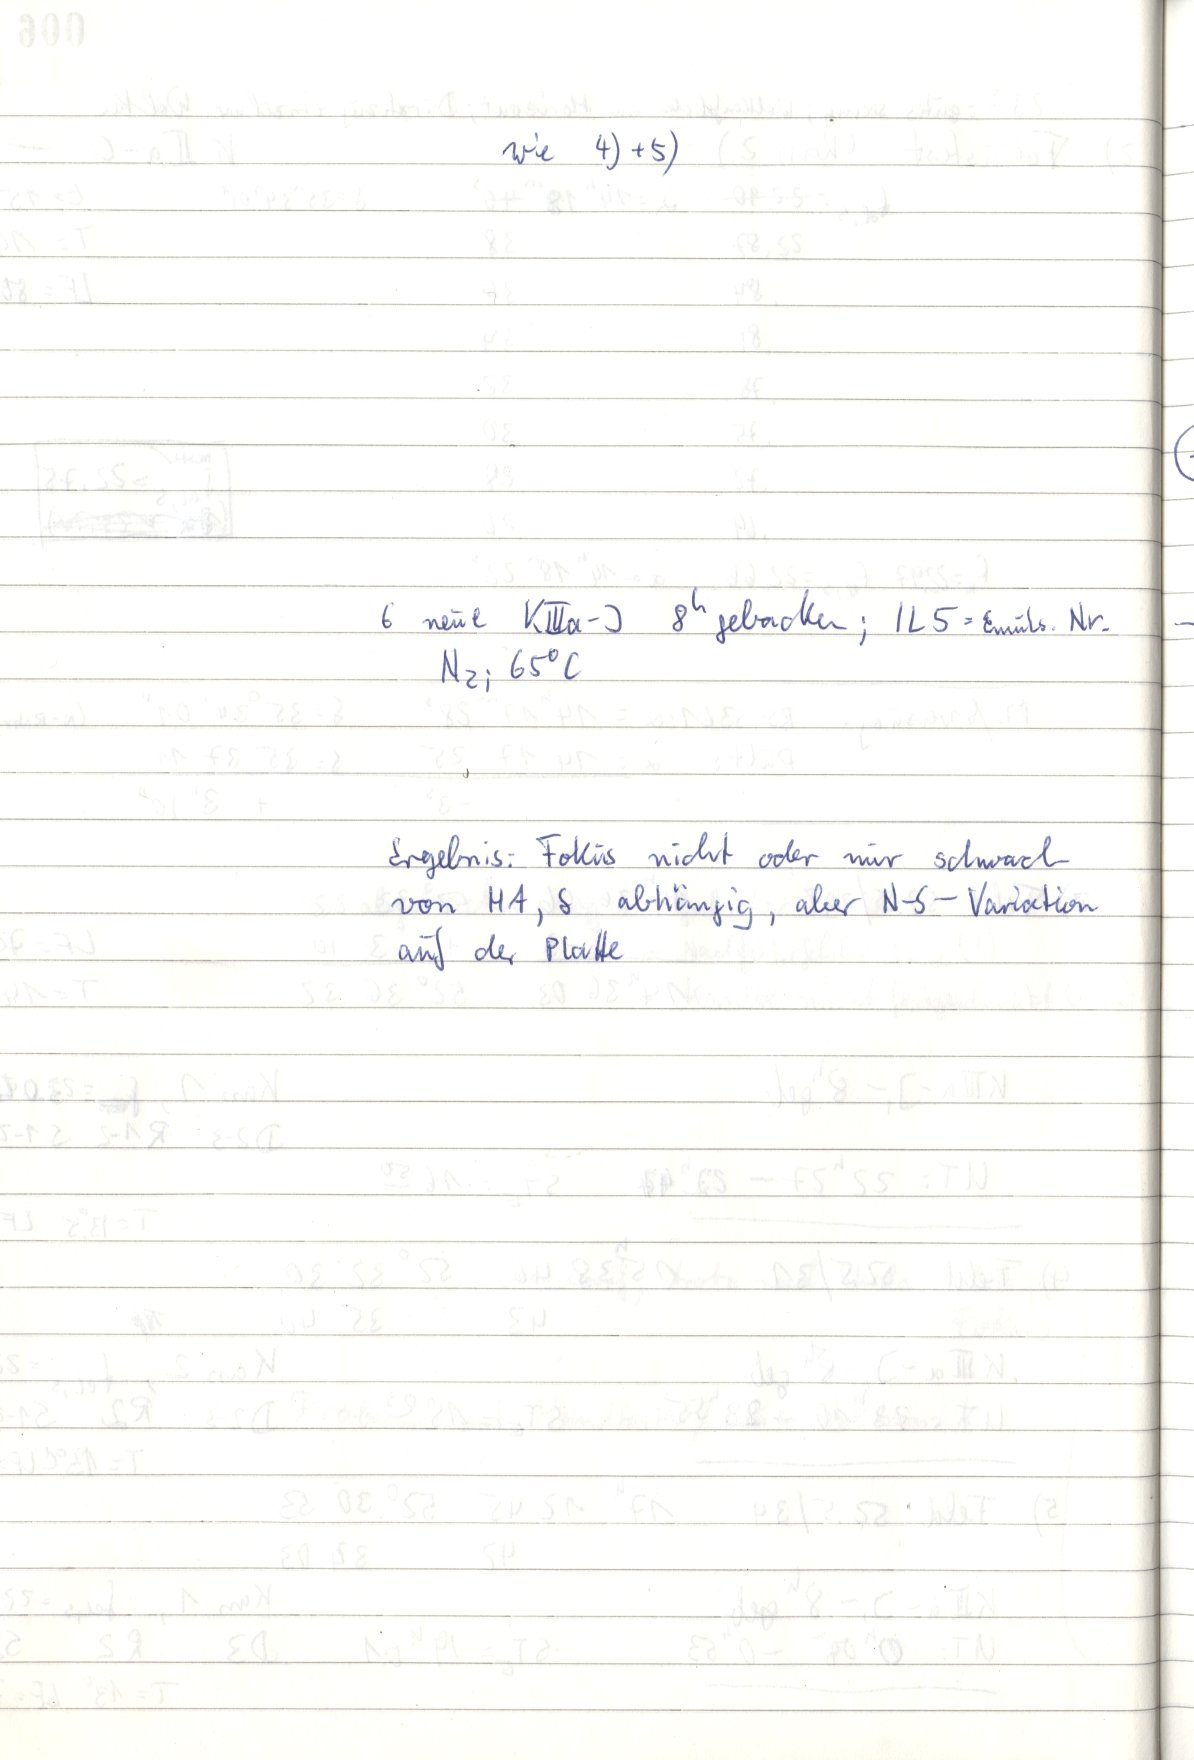 wie 4) + 5)
6 neue KIIIa-J 8h gebacken; 1L5 = Emuls. Nr.
N2; 65°C
Ergebnis: Fokus nicht oder nur schwach
von HA, δ abhängig, aber N-S-Variation
auf der Platte